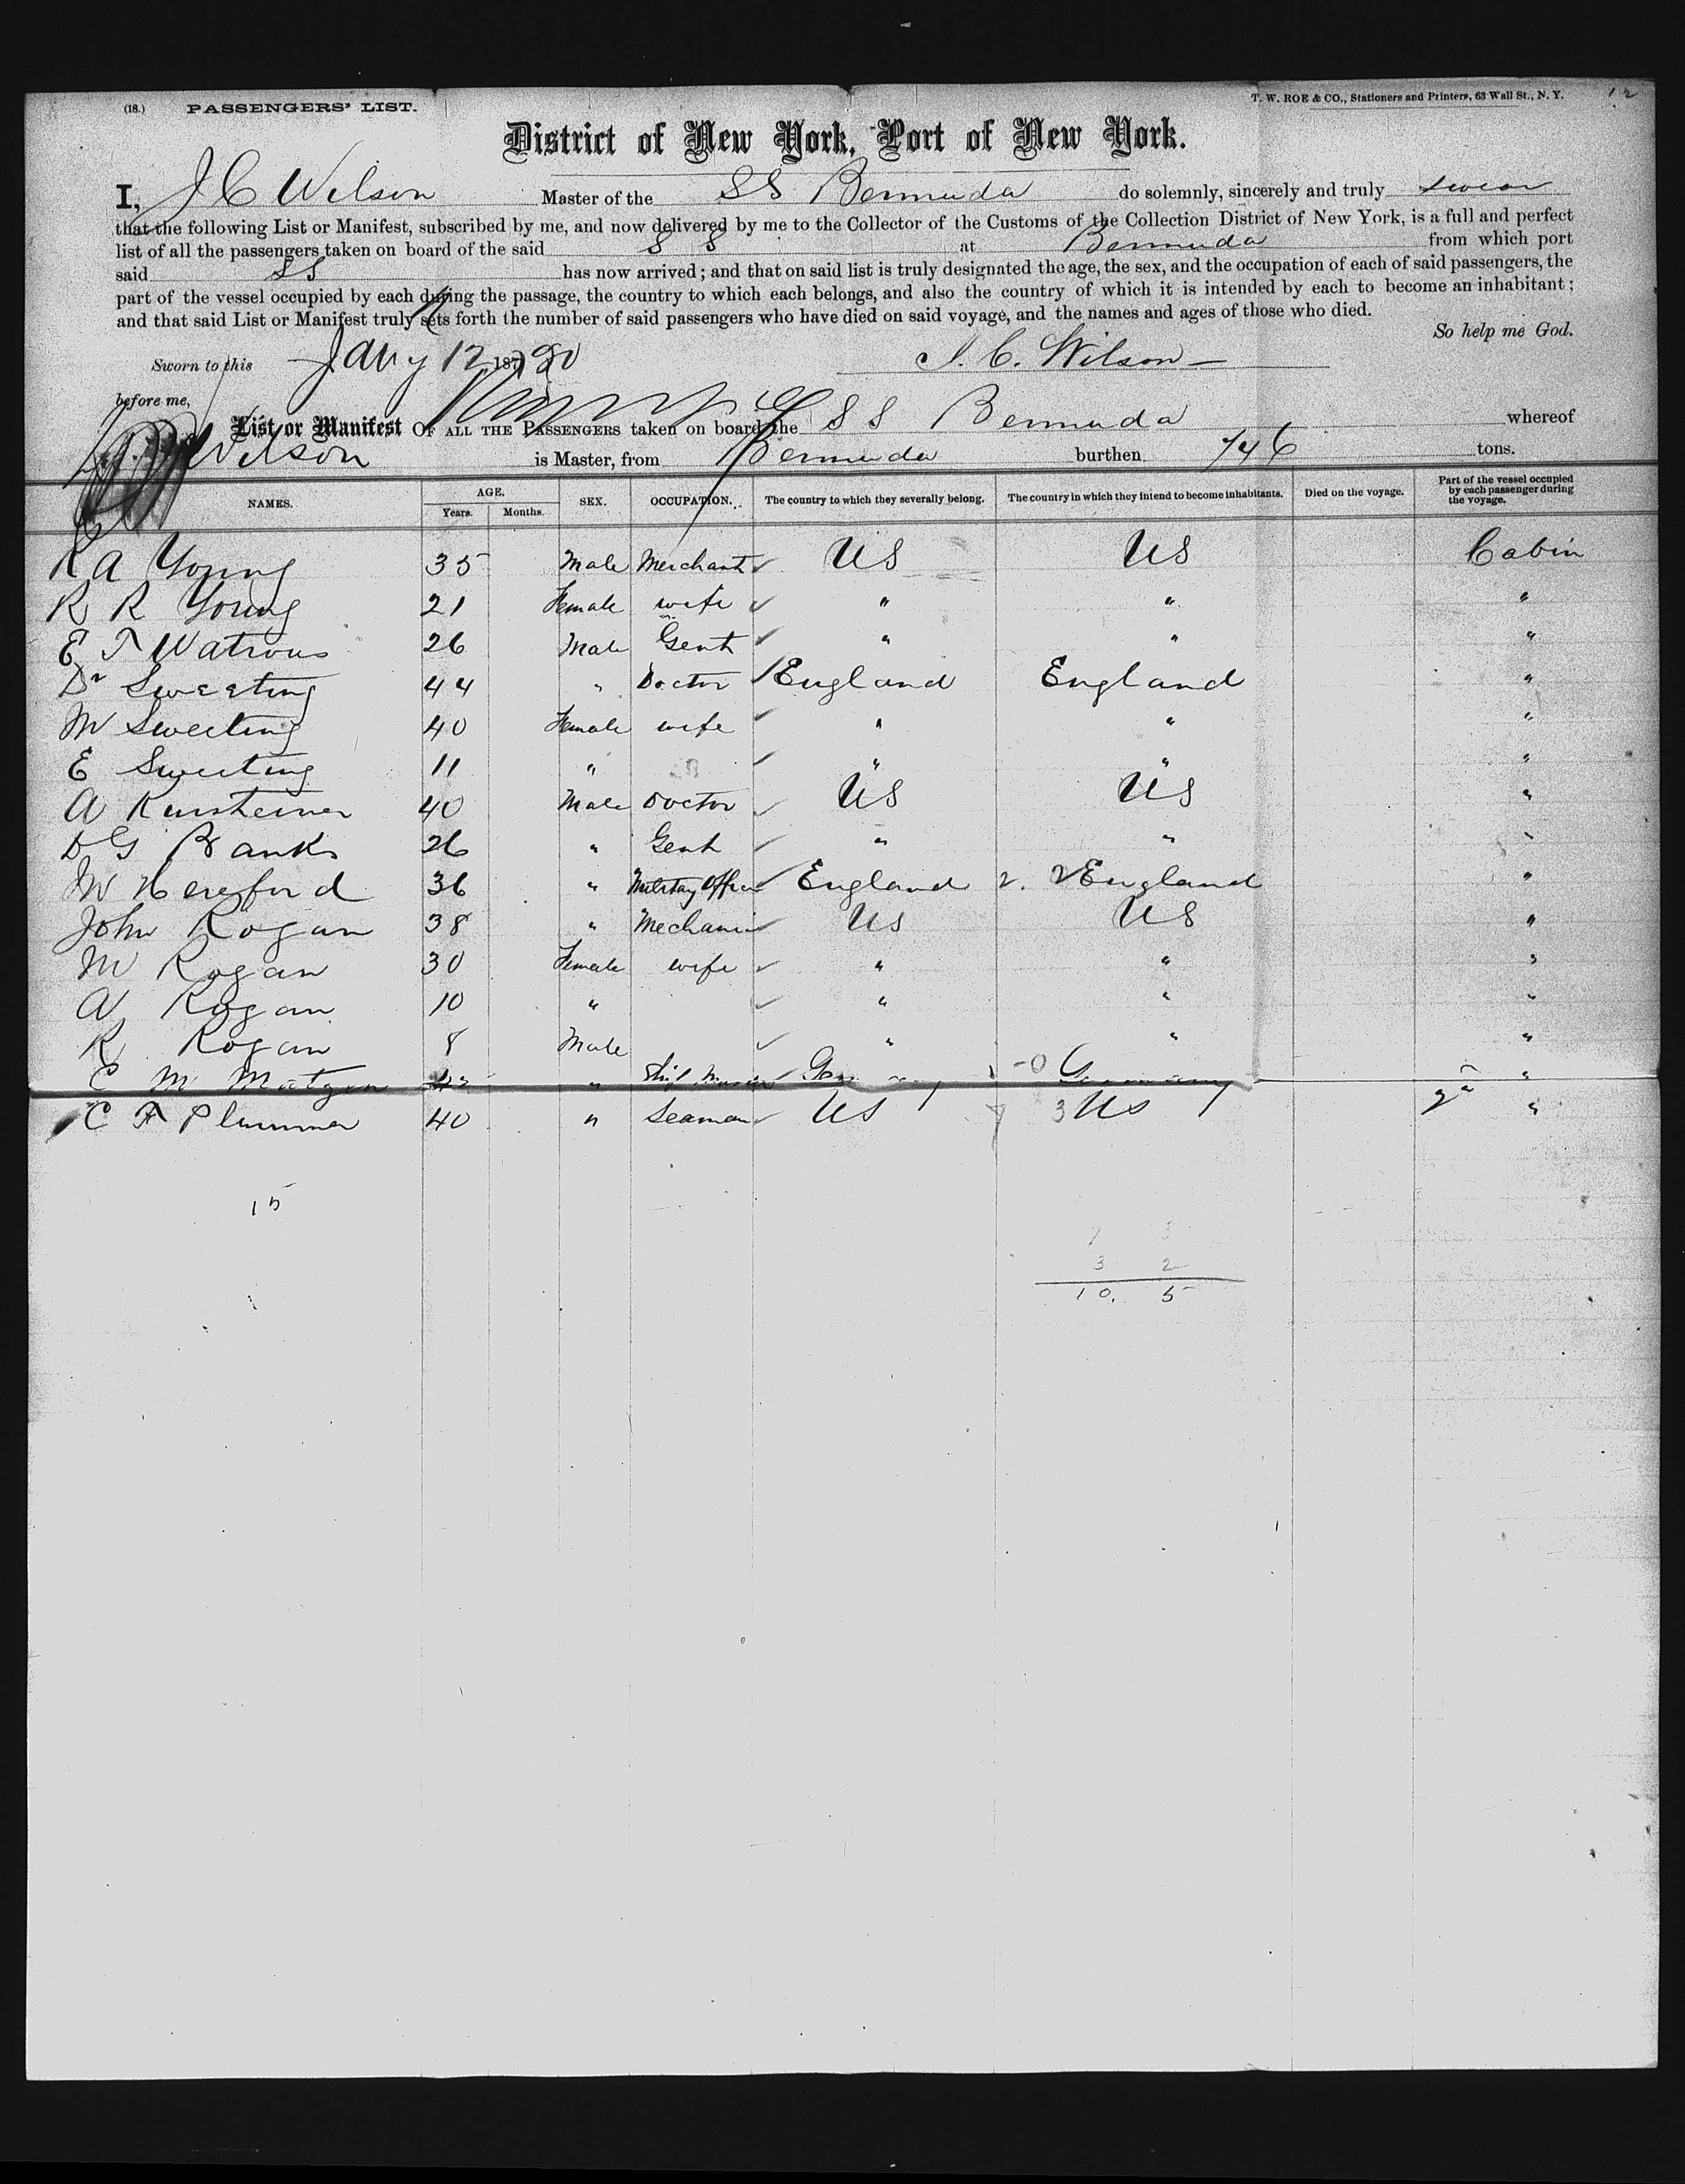 (18.) PASSENGERS' LIST. T. W. ROE & CO., Stationers and Printers, 63 Wall St., N. Y. 12
District of New York, Port of New York.
I, J C Wilson Master of the SS Bermuda do solemnly, sincerely and truly swear
that the following List or Manifest, subscribed by me, and now delivered by me to the Collector of the Customs of the Collection District of New York, is a full and perfect
list of all the passengers taken on board of the said S S at Bermuda from which port
said SS has now arrived; and that on said list is truly designated the age, the sex, and the occupation of each of said passengers, the
part of the vessel occupied by each during the passage, the country to which each belongs, and also the country of which it is intended by each to become an inhabitant;
and that said List or Manifest truly sets forth the number of said passengers who have died on said voyage, and the names and ages of those who died.
So help me God.
Sworn to this Jany 12 1880 J. C. Wilson
before me,
List or Manifest OF ALL THE PASSENGERS taken on board the S S Bermuda whereof
Wilson is Master, from Bermuda burthen 746 tons.
NAMES. AGE. Years. Months. SEX. OCCUPATION. The country to which they severally belong. The country in which they intend to become inhabitants. Died on the voyage. Part of the vessel occupied by each passenger during the voyage.
R A Young 35 Male Merchant US US Cabin
R R Young 21 Female wife " " "
E T Watrous 26 Male Gent " " "
Dr Sweeting 44 " Doctor England England "
M Sweeting 40 Female wife " " "
E Sweeting 11 " " " "
A 40 Male Doctor US US "
D G Banks 26 " Gent " " "
W Hereford 36 " Military Officer England 2. 2 England "
John Rogan 38 " Mechanic US US "
M Rogan 30 Female wife " " "
A Rogan 10 " " " "
R Rogan 8 Male " " "
C M " Germany "
C F Plummer 40 " Seaman US 3 US "
15
7 3
3 2
10. 5